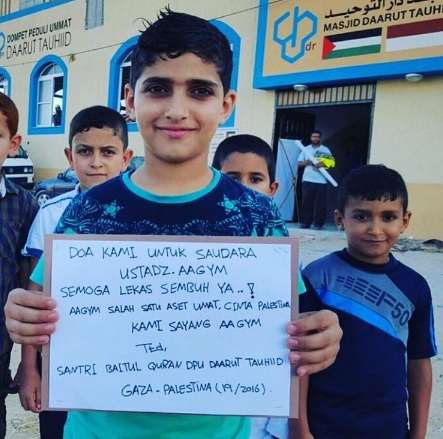 DOMPET PEDULI UMMAT
DAARUT TAUHIID
دار التوحيد
MASJID DAARUT TAUHIID
DOA KAMI UNTUK SAUDARA
USTADZ. AAGYM
SEMOGA LEKAS SEMBUH YA..!
AAGYM SALAH SATU ASET UMAT, CINTA PALESTINA
KAMI SAYANG AAGYM
TTD,
SANTRI BAITUL QURAN DPU DAARUT TAUHIID
GAZA-PALESTINA (19/2016).
F-50